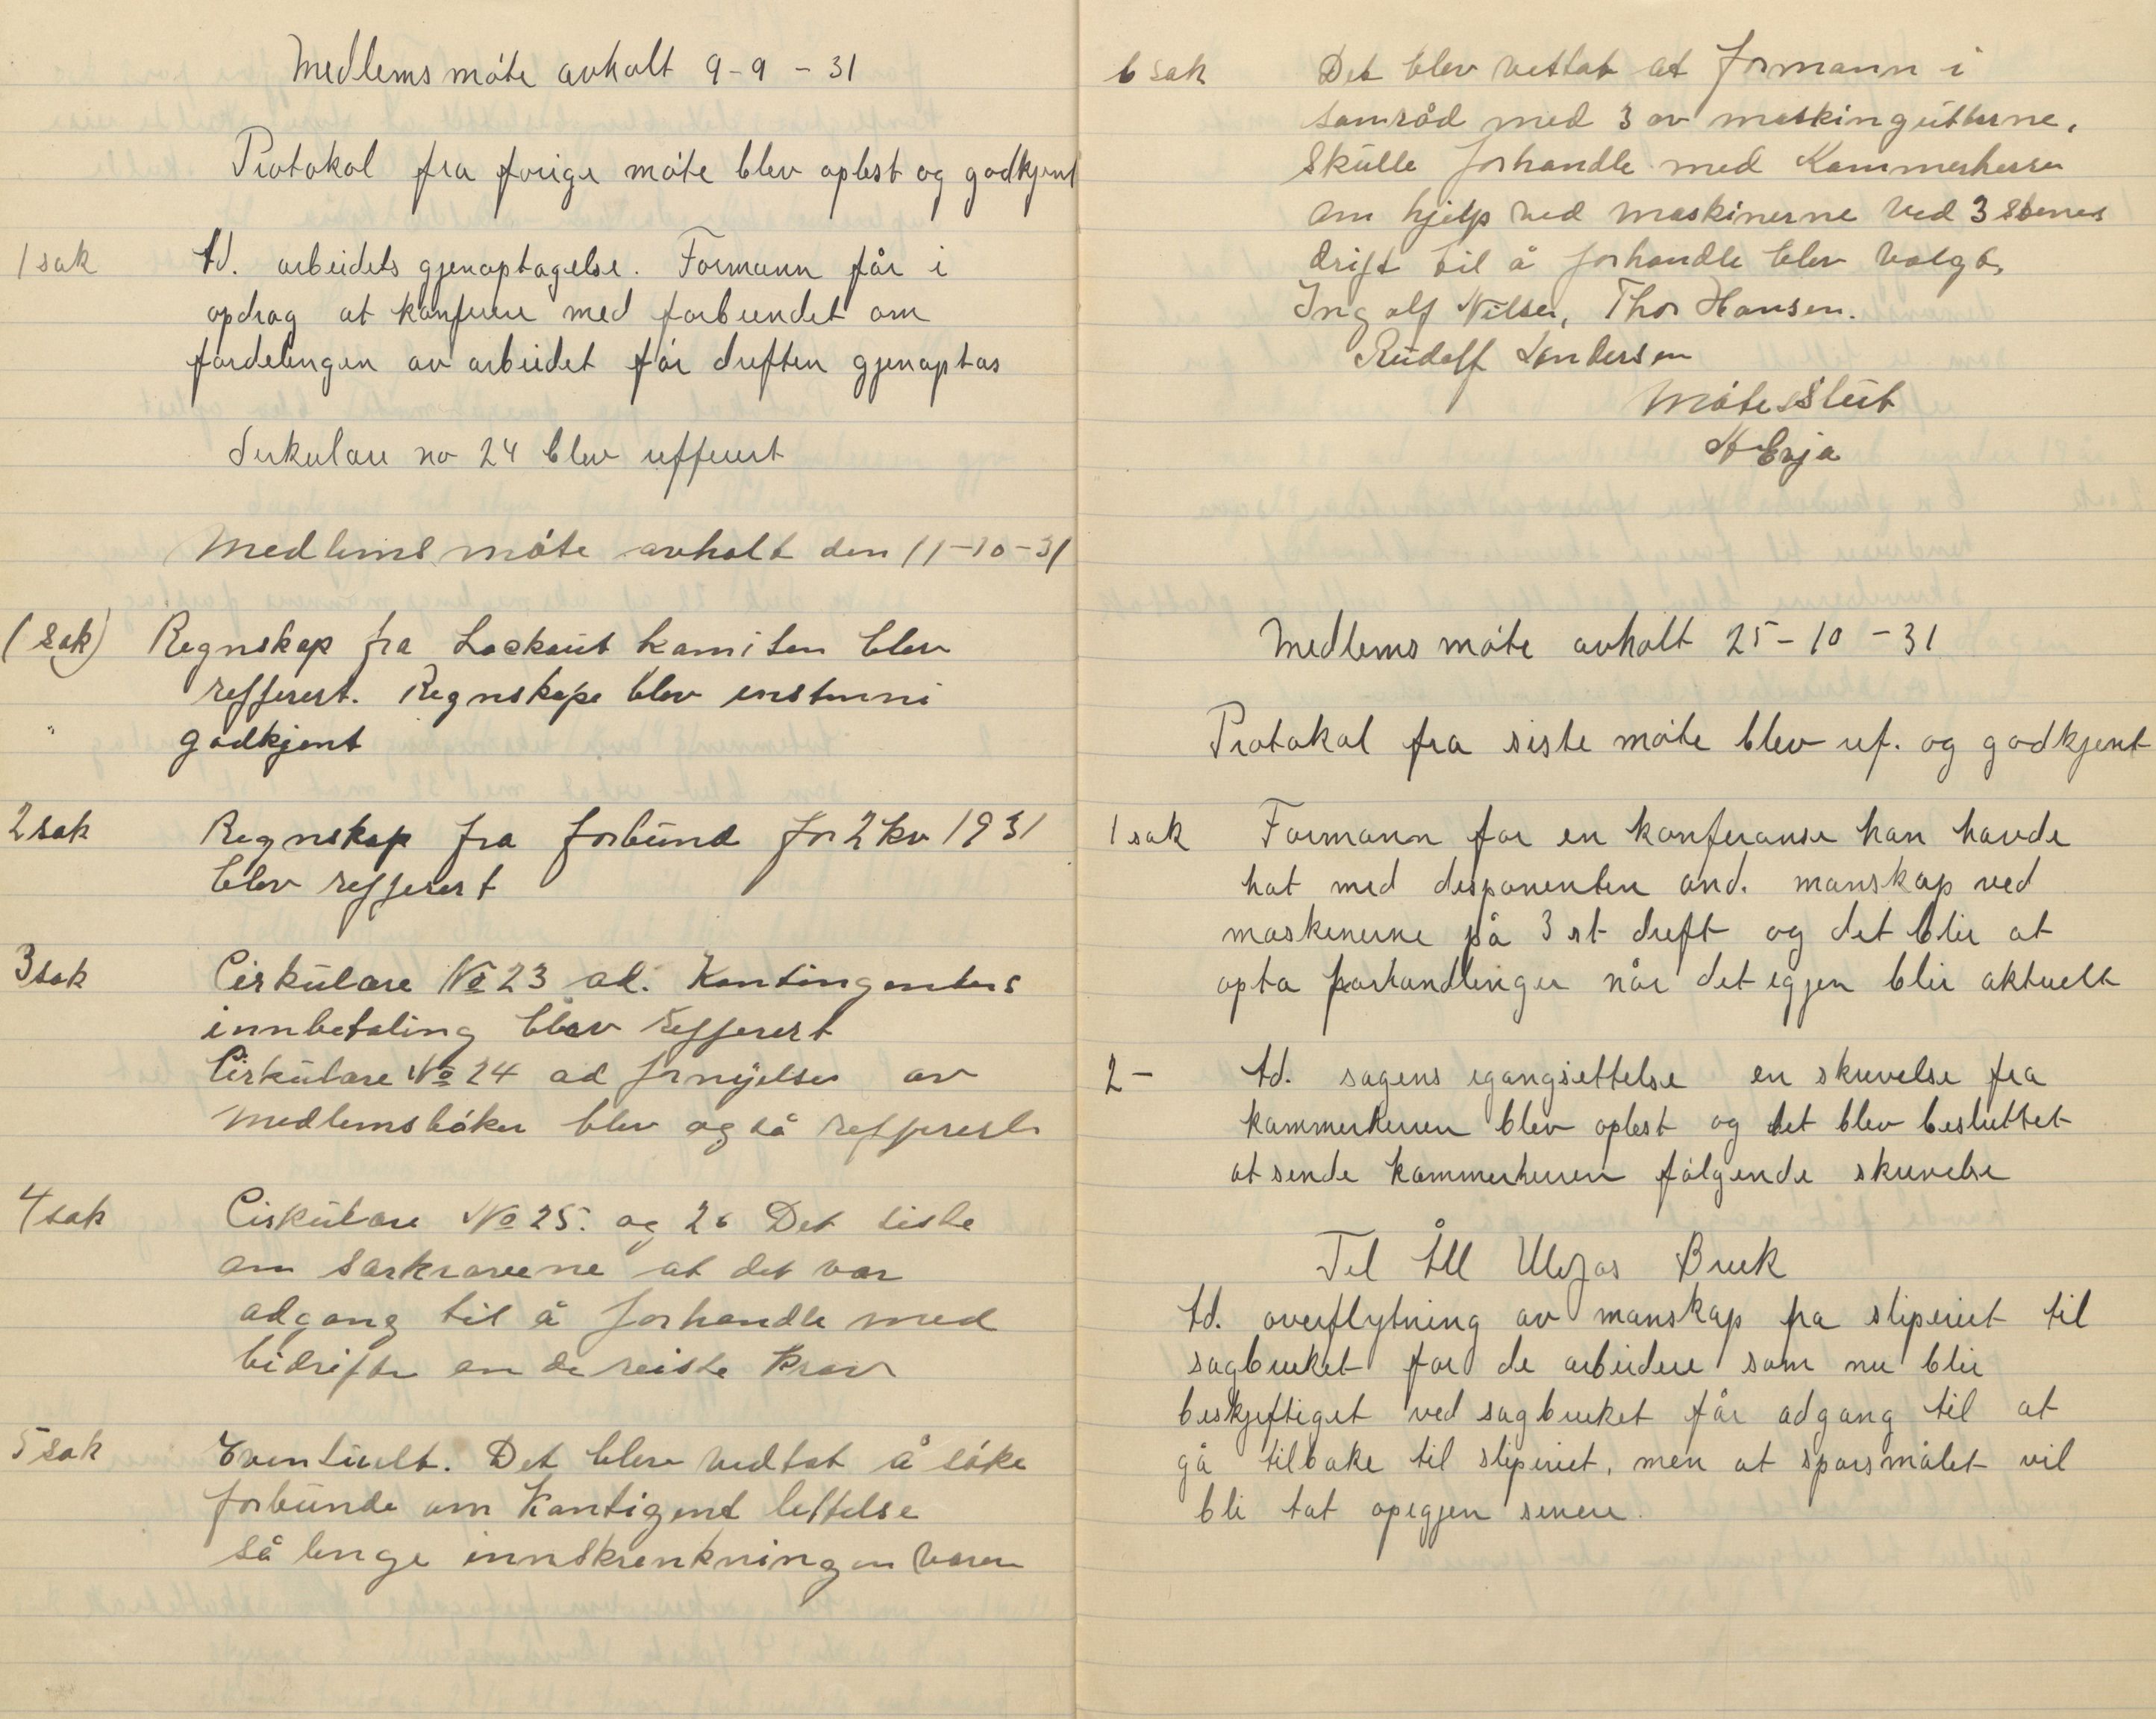 Medlemsmöte avholt 9-9-31
Protokol fra forige möte blev oplest og godkjent
1 sak Ad. arbeidets gjenoptagelse. Formann får i
opdrag at konferere med forbundet om
fordelingen av arbeidet för driften gjenoptas
Sirkulære no 24 blev refferert
Medlems möte avholt den 11-10-31
(1 sak) Regnskap fra Lockout komiteen blev
refferert. Regnskape blev enstemmi
godkjent
2 sak Regnskap fra forbund for 2 kv 1931
blev refferert
3 sak Cirkulære No 23 ad. Kontingentens
innbetaling blev refferert
Cirkulære No 24 ad fornyelse av
Medlemsböker blev også refferert
4 sak Cirkulære No 25. og 26 Det siste
om særkravene at det var
adgang til å forhandle med
bidrifte om de reiste krav
5 sak Eventuelt. Det blev vedtat å söke
forbunde om Kontigent lettelse
så lenge innskrenkningen varer
6 sak Det blev vettat at formann i
samråd med 3 av maskingutterne,
skulle forhandle med Kammerherre
om hjelp ved maskinerne ved 3 skenes
drift til å forhandle blev valgt,
Ingolf Nilsen, Thor Hansen.
Rudolf Andersen
Möte Slut
Medlemsmöte avholt 25-10-31
Protokol fra siste möte blev ref. og godkjent
1 sak Formann for en konferanse han havde
hat med disponenten and. manskap ved
maskinerne på 3 st drift og det blir at
opta forhandlinger når det igjen blir aktuelt
2 - Ad. sagens igangsettelse en skrivelse fra
kammerherren blev oplest og det blev besluttet
at sende kammerherren fölgende skrivelse
Til A/S Ulefos Bruk
Ad. overflytning av manskap fra sliperiet til
sagbruket for de arbeidere som nu blir
beskjeftiget ved sagbruket får adgang til at
gå tilbake til sliperiet, men at spörsmålet vil
bli tat opigjen senere.